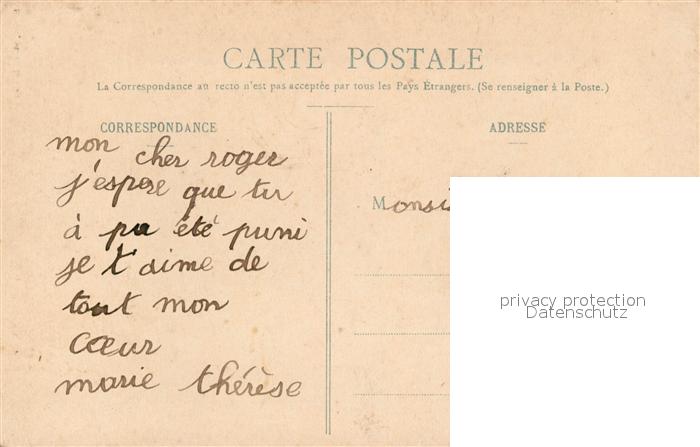 CARTE POSTALE
La Correspondance au recto n'est pas acceptée par tous les Pays Étrangers. (Se renseigner à la Poste.)
CORRESPONDANCE
mon cher roger
j'espere que tu
à pa été puni
je t'aime de
tout mon
cœur
marie thérèse
ADRESSE
Monsi
privacy protection
Datenschutz